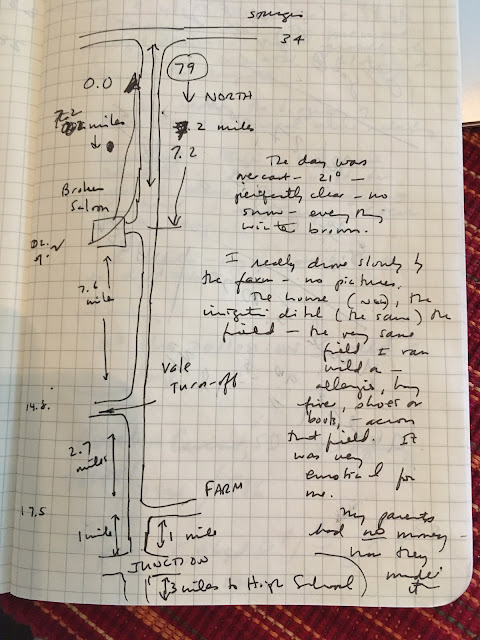 Sturgis
34
79
0.0
NORTH
7.2
miles
7.2 miles
7.2
The day was
overcast - 21° -
perfectly clear - no
snow - everything
winter brown.
Broken
Saloon
I really drove slowly by
the farm - no pictures.
The house (new), the
ditch (the same) the
field - the very same
field I ran
wild a -
allergies, hay
fever, shoes or
boots, - across
that field. It
was very
emotional for
me.
7.6
mile
Vale
Turn-off
14.8
2.7
miles
FARM
17.5
1 mile
1 mile
My parents
had no money -
how they
made
it
JUNCTION
3 miles to High School